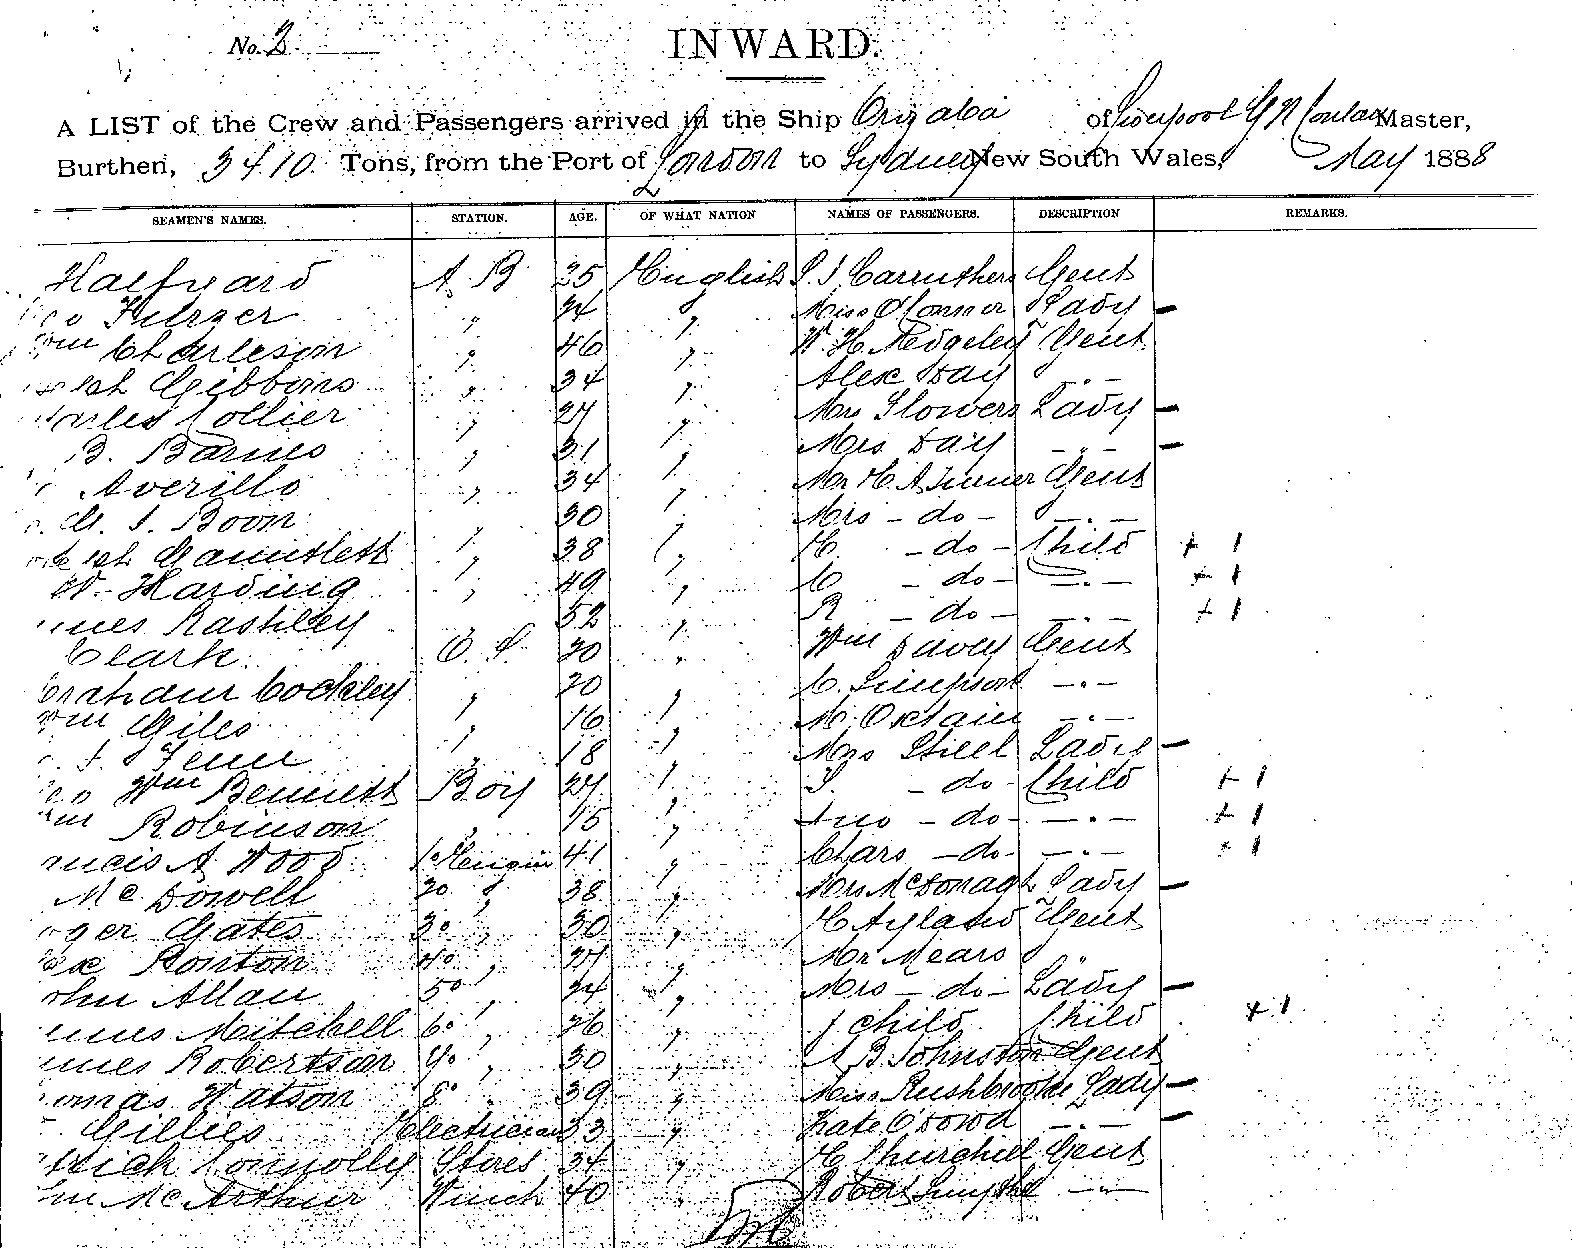 No. 2
INWARD.
A LIST of the Crew and Passengers arrived in the Ship Orizaba of Liverpool G N Conlan Master,
Burthen, 3410 Tons, from the Port of London to Sydney New South Wales, May 1888
SEAMEN'S NAMES. STATION. AGE. OF WHAT NATION NAMES OF PASSENGERS. DESCRIPTION REMARKS.
Halfyard A B 35 English Carruthers Gent
Fulrzer 24 " Miss O'Connor Lady –
Wm Charleson " 46 " W. H. Redgeley Gent
Gibbons " 34 " Alex Day - " -
Collier " 27 " Mrs Flowers Lady –
B. Barnes " 31 " Mrs Day - " - –
Averillo " 34 " Mr H. A. Turner Gent
I. Boon 30 " Mrs - do - - " -
Gauntlett " 38 " H. - do - Child + 1
W. Harding " 49 " C - do - - " - + 1
Rashley 52 " R - do - - " - + 1
Clark O. S. 20 " Wm Davey Gent
Cockley " 20 " C. Simpson - " -
Wm Giles " 16 " M. - " -
Fenn " 18 " Mrs Steel Lady –
Wm Bennett Boy 27 " S. - do - Child + 1
Robinson " 15 " two - do - - " - + 1
A Wood 1o Engin 41 " Chars - do - - " - + 1
Mc Dowell 2o " 38 " Mrs McDonagh Lady –
Gates 3o " 30 " H Ayland Gent
Ronton 4o " 27 " Mr Mears "
Allan 5o " 24 " Mrs - do - Lady –
Mitchell 6o " 26 " 1 child Child + 1
Robertson 7o " 30 " A B. Johnston Gent
Watson 8o " 39 " Miss Rushbrooke Lady –
Gillies Electrician 33 " Kate O'Dowd - " - –
Connolly Stores 34 " H Churchill Gent
McArthur Winch 40 " Robert Smythe - " -